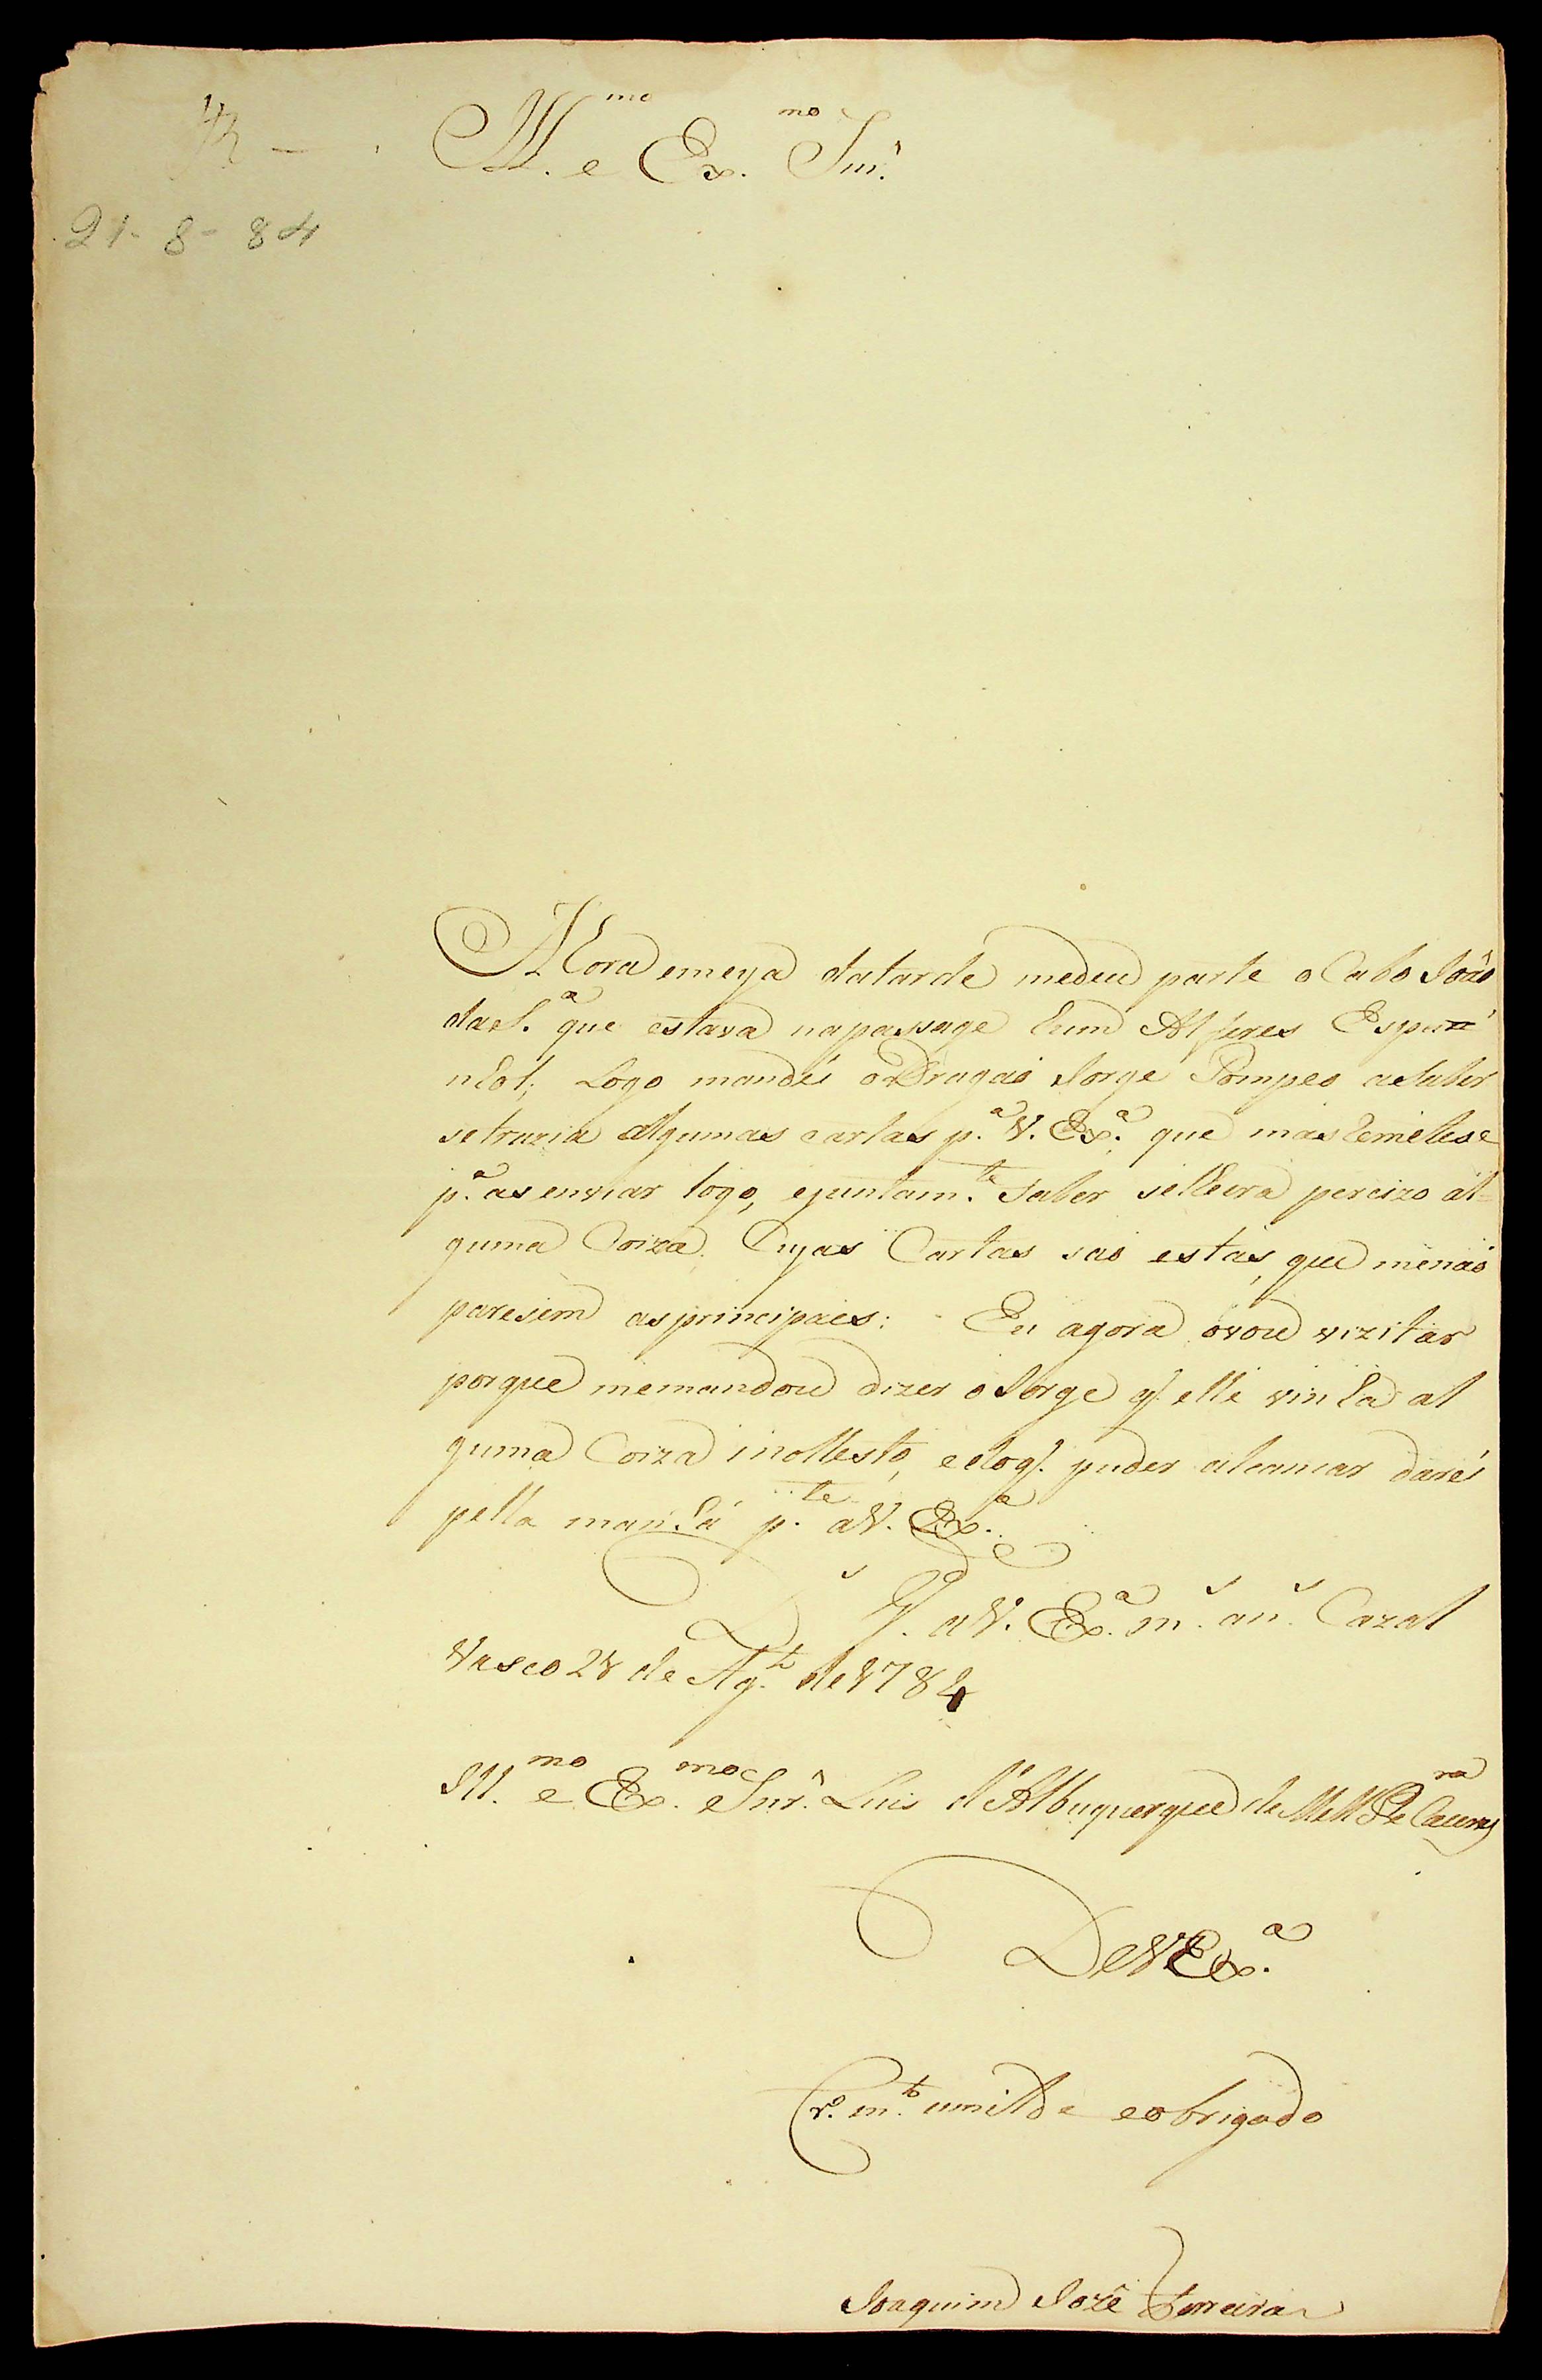 Ill.mo e Ex.mo Snr.
21-8-84
A hora emeya datarde medeu parte o Cabo João
da S.a que estava napassage hum Alferes Espa
nhol; Logo mandei o Dragaõ Jorge Pompeo a saber
setrazia algumas cartas p.a V. Ex.a que mas remetese
p.a as enviar logo, ejuntam.te saber selhe era percizo al-
guma Coiza. Cujas Cartas saõ estas, que menaõ
paresem asprincipaes: Eu agora ovou vizitar
porque memandou dizer o Jorge q. elle vinha al
guma Coiza mollesto, edoq. puder alcancar darei
pella manhã p.te aV. Ex.a
D.s G.e a V. Ex.a m.s an.s Cazal
Vasco 21 de Ag.to de 1784
Ill.mo e Ex.mo Snr. Luis d'Albuquerque de Mello Pr.a Caceres
DeV Ex.a
Cr.o m.to umilde eobrigado
Joaquim Jozé Ferreira